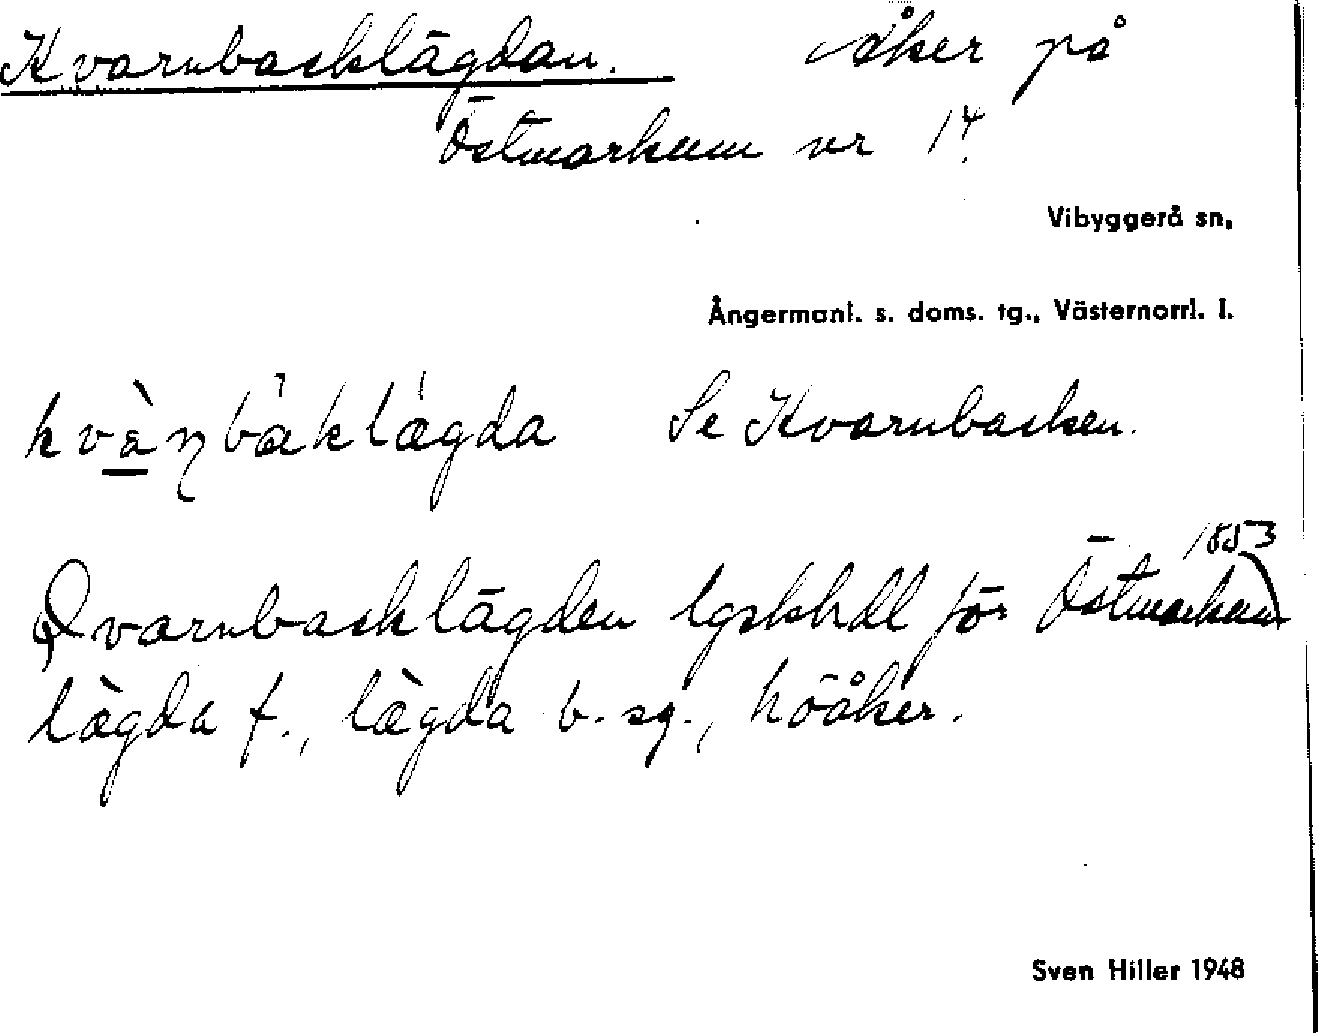 Kvarnbacklägdan. åker på
Östmarkum nr 14.
Vibyggerå sn,
Ångermanl. s. doms. tg., Västernorrl. l.
kvàɳbáklǽgda Se Kvarnbacken.
Qvarnbacklägden lgskhdl för Östmarkum 1853
lǽgda f., lǽgda b. sg., höåker.
Sven Hiller 1948